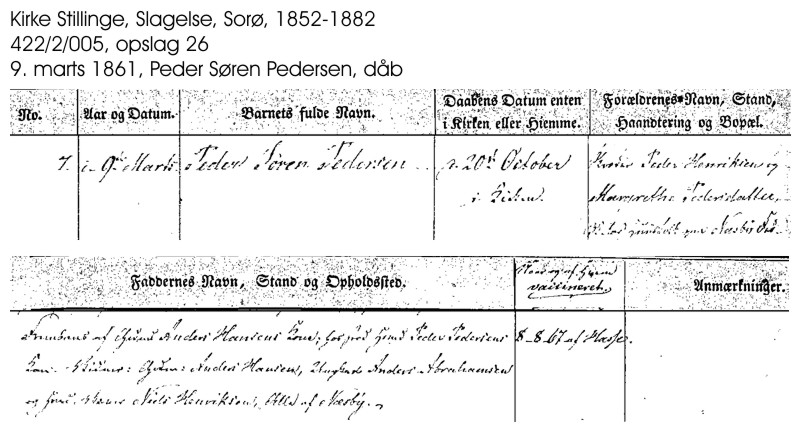 Kirke Stillinge, Slagelse, Sorø, 1852-1882
422/2/005, opslag 26
9. marts 1861, Peder Søren Pedersen, dåb
No.
Aar og Datum.
Barnets fulde Navn.
Daabens Datum enten
i Kirken eller Hiemme.
Forældrenes Navn, Stand,
Haandtering og Bopæl.
7.
9de Marts
Peder Søren Pedersen
20de October
i Kirken.
Peder Henriksen og
Margrethe Pedersdatter,
Næsby
Faddernes Navn, Stand og Opholdssted.
vaccineret.
Anmærkninger.
af Anders Hansens Kone, Peder Pedersens
Kone. Anders Hansen, Ungkarl Anders Abrahamsen
og Niels Henriksen, Alle af Næsby.
8-8-67 af Hasse.